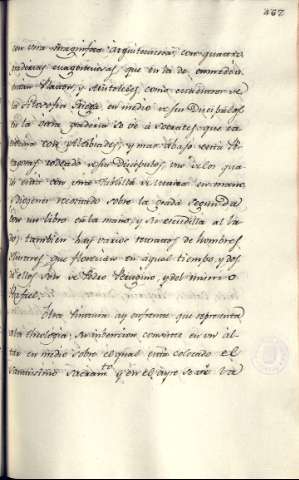 262
con una magnifica Arquitectura, con quatro
graderias, que en la de enmedio
estan Platon, y Aristoteles como cavezas de
la filosofia Griega en medio de sus Discipulos.
En la otra graderia se ve à Socrates que ra-
ciona con Alcibiades, y mas abajo esta Pi-
tagoras rodeado de sus Discipulos, uno de los qua-
les està con una tablilla en mano,
Diogenes recostado sobre la grada segunda
con un libro en la mano, y su escudilla al la-
do; tambien hay varios retratos de hombres
ilustres, que florecian en aquel tiempo, y dos
de ellos son de Pedro Perugino, y del mismo
Rafael.
Otra Pintura ay enfrente que representa
a la theologia; su invencion consiste en un al-
tar en medio sobre el qual està colocado el
Santisimo Sacram.to y en el ayre se ve la